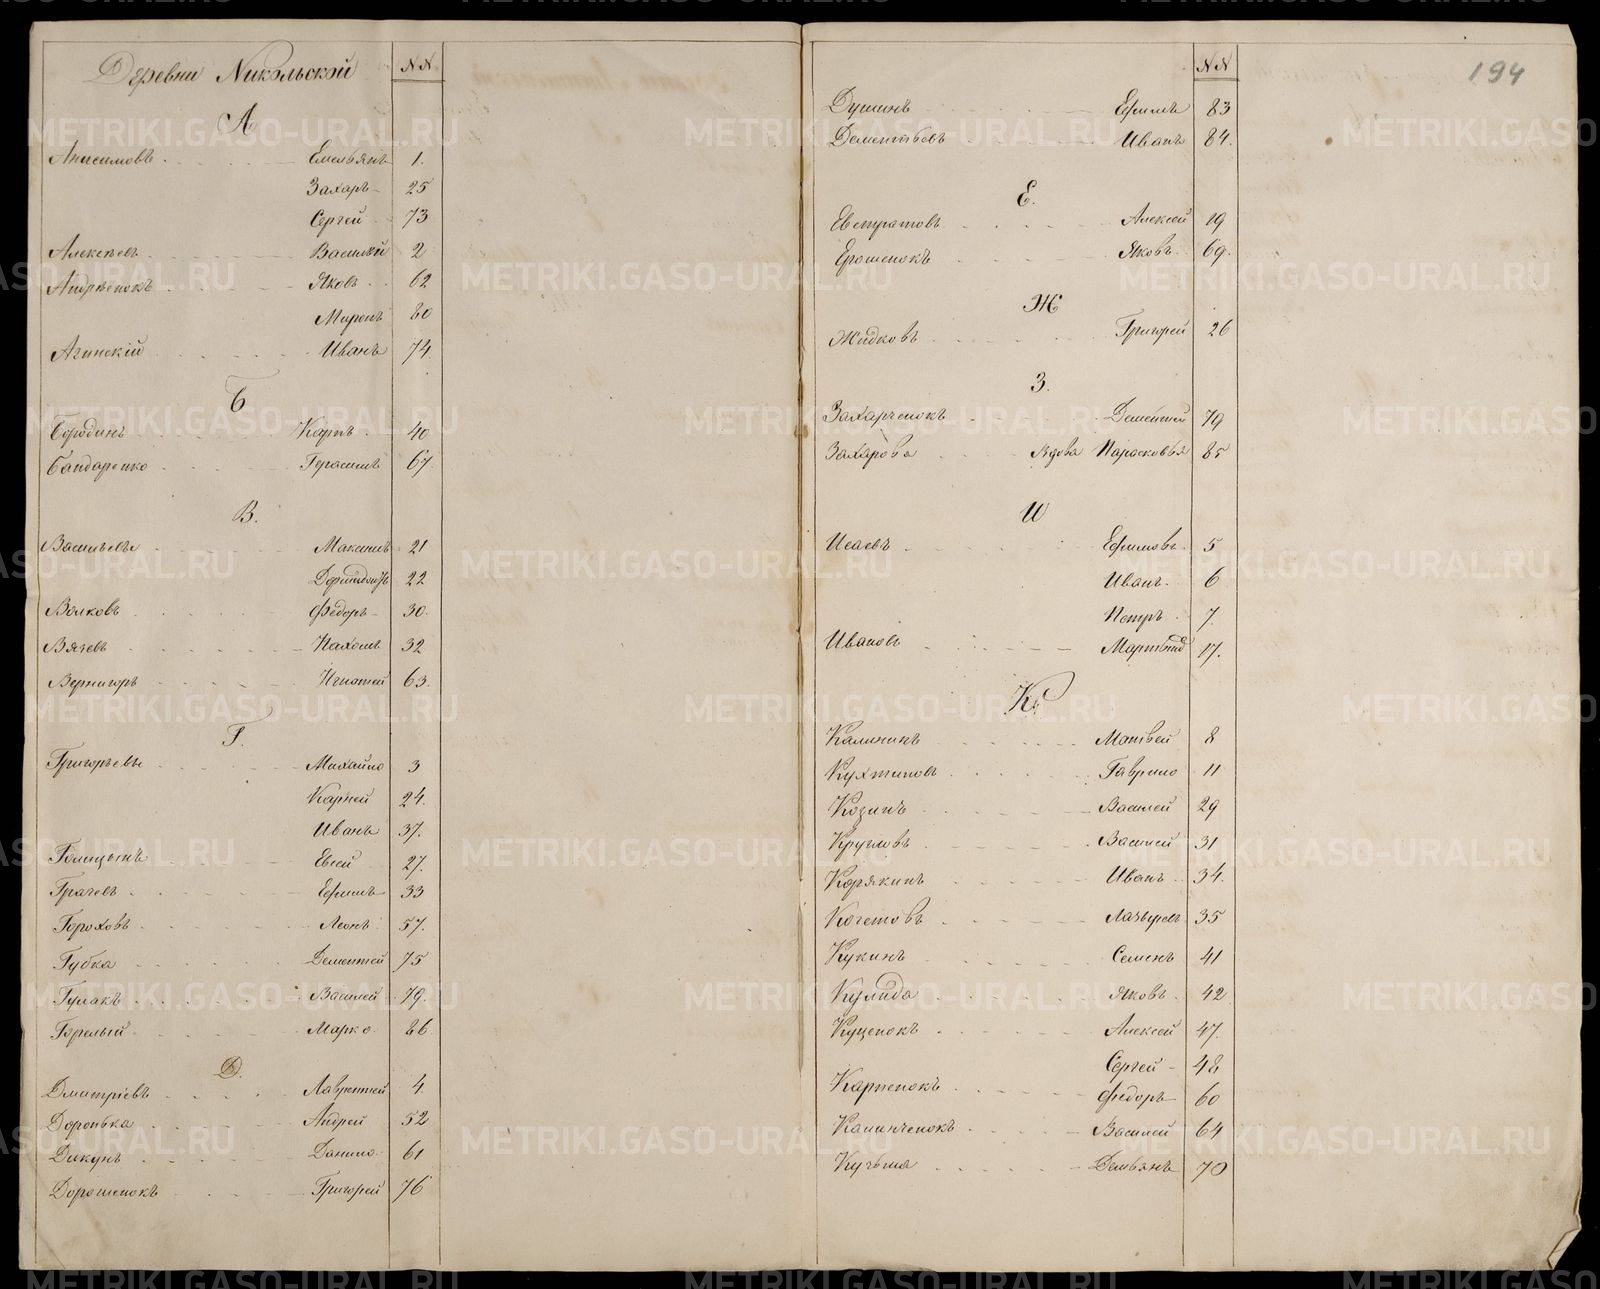 Деревни Никольской
NN
А
Анисимовъ Емельянъ 1.
Захаръ 25
Сергей 73
Алексѣевъ Василий 2
Андрѣенокъ Яковъ 62
Миронъ 80
Агинскій Иванъ 74
Б
Бородинъ Карпъ 40
Бандаренко Герасимъ 67
В.
Васильевы Максимъ 21
22
Волковъ Федоръ 30.
Вячевъ Пахомъ 32
Вернигоръ Игнатей 63.
Г.
Григорьевы Михайло 3
Карней 24.
Иванъ 37.
Голицынъ Евсей 27.
Грачевъ Ефимъ 33
Гороховъ Леонъ 57.
Губка Дементей 75
Гулакъ Василей 79.
Горелый Марко 86
Д.
Дмитріевъ Лаврентей 4.
Доронька Андрей 52
Дикунъ Данило 61
Дорошенокъ Григорей 76
NN
194
Душинъ Ефимъ 83
Дементьевъ Иванъ 84.
Е.
Евстратовъ Алексей 19
Ерошенокъ Яковъ 69.
Ж
Жидковъ Григорей 26
З.
Захарченокъ Дементей 79
Захарова Вдова Парасковья 85
И
Исаевъ Ефимовъ 5
Иванъ 6
Петръ 7
Ивановъ 17.
К
Калининъ Матвей 8
Кухтиновъ Гаврило 11
Козинъ Василей 29
Кругловъ Василей 31
Корякинъ Иванъ 34.
Кочетовъ 35
Кукинъ Семенъ 41
Кулида Яковъ 42
Куценокъ Алексей 47.
Сергей 48
Карпенокъ Федоръ 60
Калинченокъ Василей 64
Кузьма Демьянъ 70
METRIKI.GASO-URAL.RU